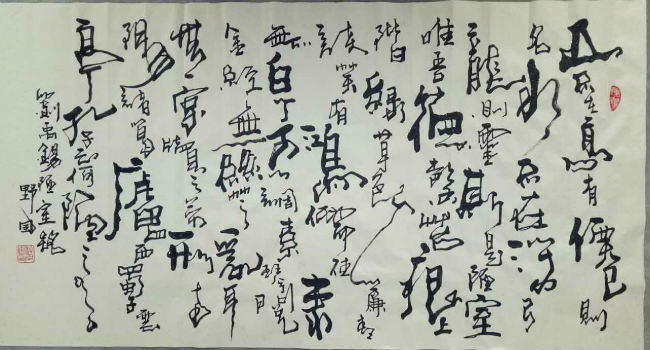 山不在高有僊則
名水不在深有
龍則靈斯是陋室
唯吾德馨苔痕上
階綠草色入簾青
談笑有鴻儒往來
無白丁可以調素琴閱
金經無絲竹之亂耳
無案牘之勞形南
陽諸葛廬西蜀子雲
亭孔子云何陋之有
劉禹錫陋室銘
野